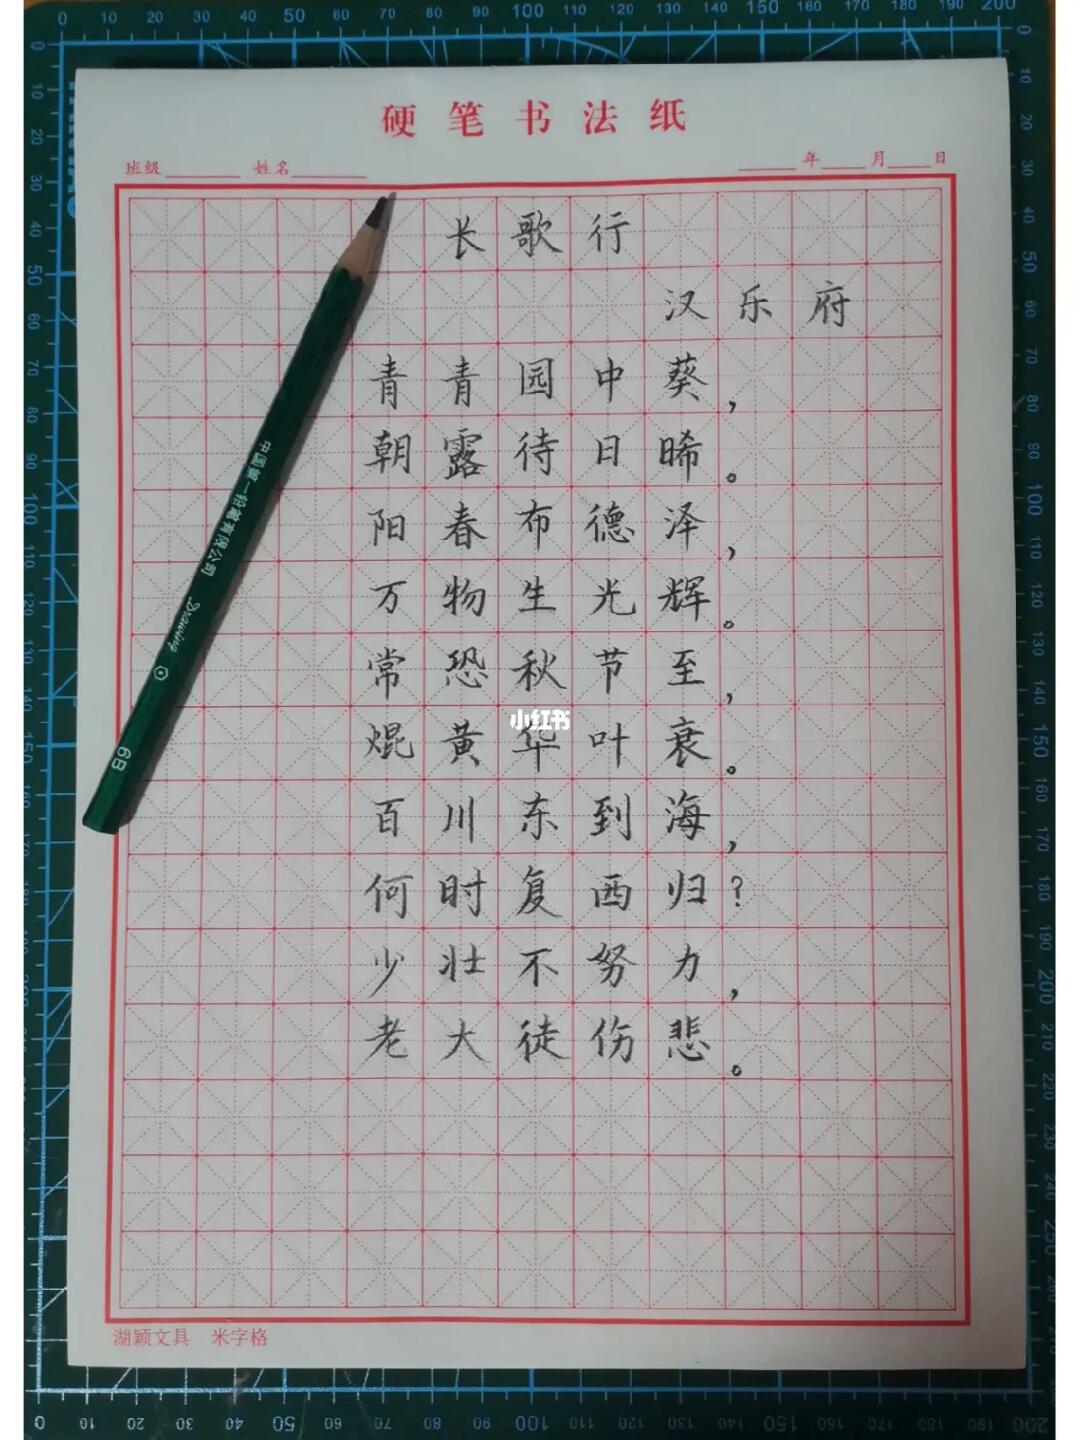 硬笔书法纸
班级 姓名 年 月 日
长歌行
汉乐府
青青园中葵，
朝露待日晞。
阳春布德泽，
万物生光辉。
常恐秋节至，
焜黄华叶衰。
百川东到海，
何时复西归?
少壮不努力，
老大徒伤悲。
湖颖文具 米字格
中国第一铅笔有限公司 Drawing 6B
小红书
0 10 20 30 40 50 60 70 80 90 100 110 120 130 140 150 160 170 180 190 200